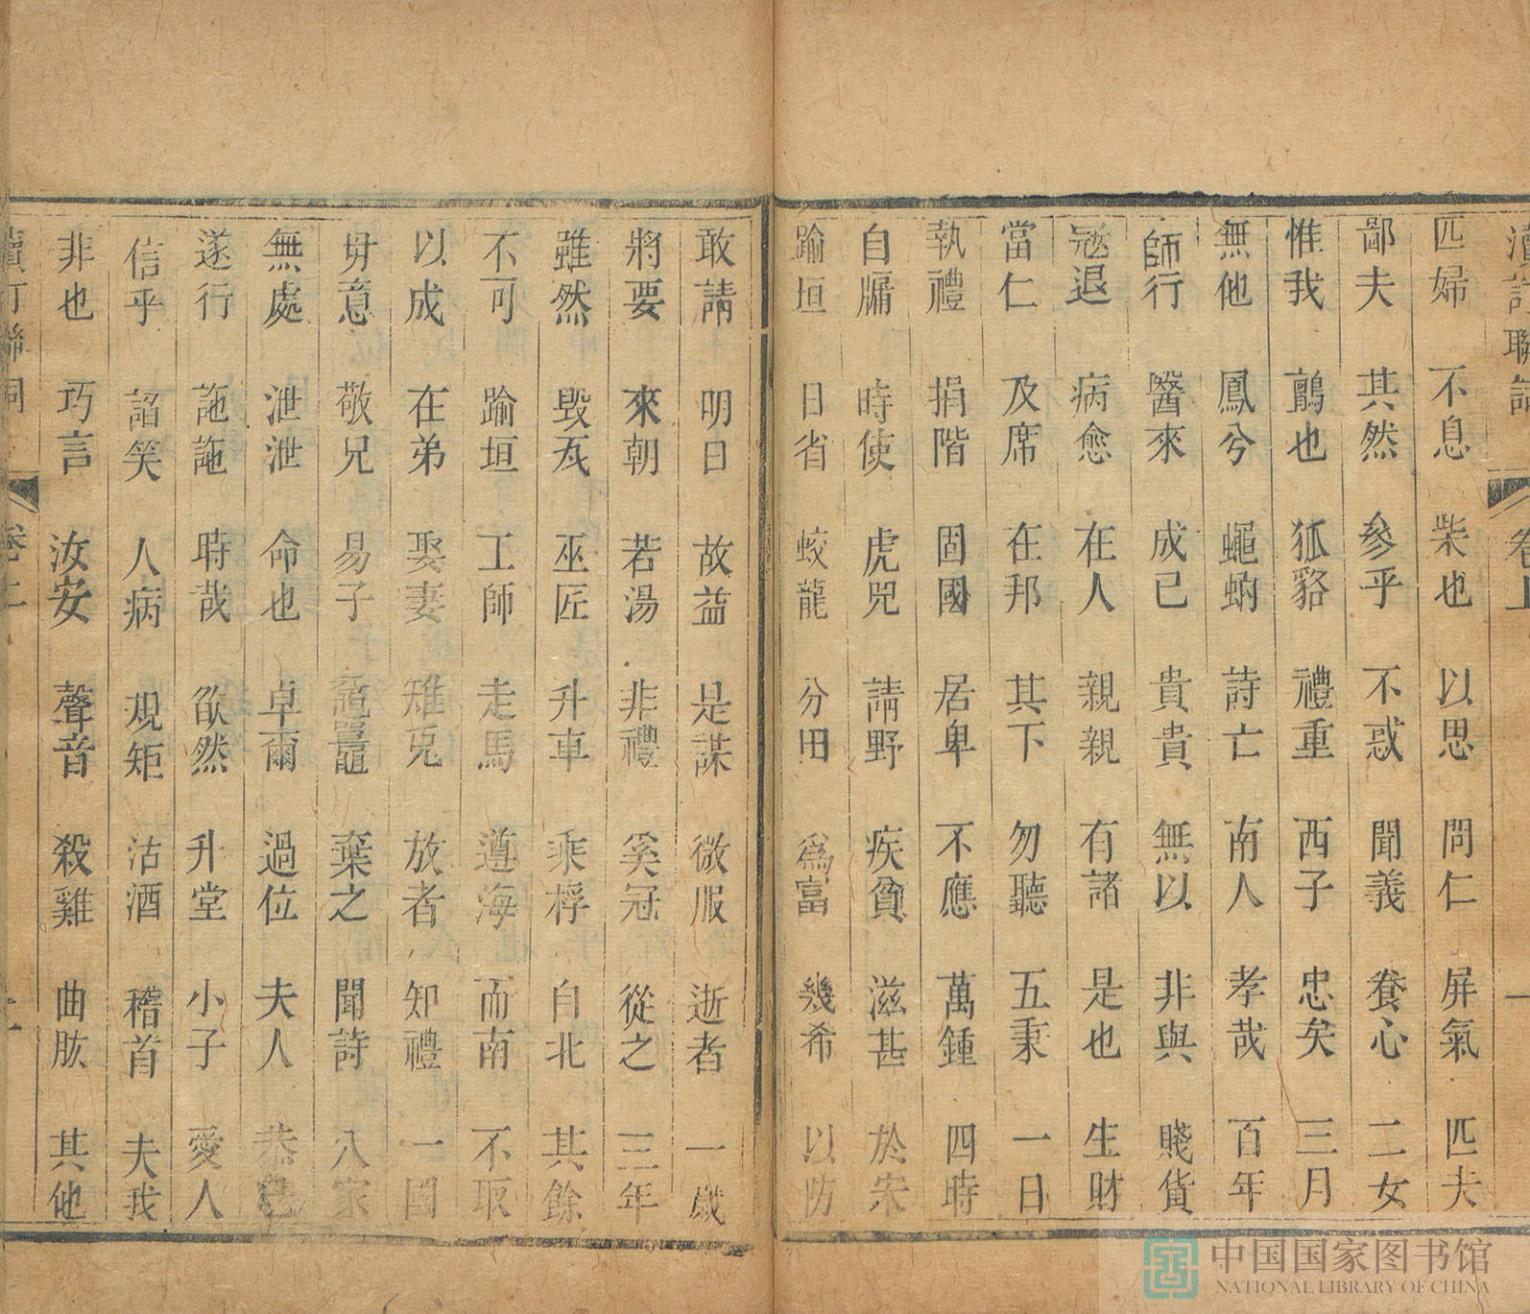 匹婦 不息 柴也 以思 問仁 屏氣 匹夫
鄙夫 其然 參乎 不惑 聞義 養心 二女
惟我 鷊也 狐貉 禮重 西子 忠矣 三月
無他 鳳兮 蠅蚋 詩亡 南人 孝哉 百年
師行 醫來 成已 貴貴 無以 非與 賤貨
冦退 病愈 在人 親親 有諸 是也 生財
當仁 及席 在邦 其下 勿聽 五秉 一日
執禮 捐階 固國 居卑 不應 萬鍾 四時
自牖 時使 虎兕 請野 疾貧 滋甚 於宋
踰垣 日省 蛟龍 分田 爲富 幾希 以防
敢請 明日 故益 是謀 微服 逝者 一歲
將要 來朝 若湯 非禮 奚冠 從之 三年
雖然 毀瓦 巫匠 升車 乘桴 自北 其餘
不可 踰垣 工師 走馬 遵海 而南 不取
以成 在弟 娶妻 雉兎 放者 知禮 一國
毋意 敬兄 易子 黿鼉 棄之 聞詩 八家
無處 泄泄 命也 卓爾 過位 夫人 恭己
遂行 訑訑 時哉 欲然 升堂 小子 愛人
信乎 諂笑 人病 規矩 沽酒 稽首 夫我
非也 巧言 汝安 聲音 殺雞 曲肱 其他
中国国家图书馆
NATIONAL LIBRARY OF CHINA